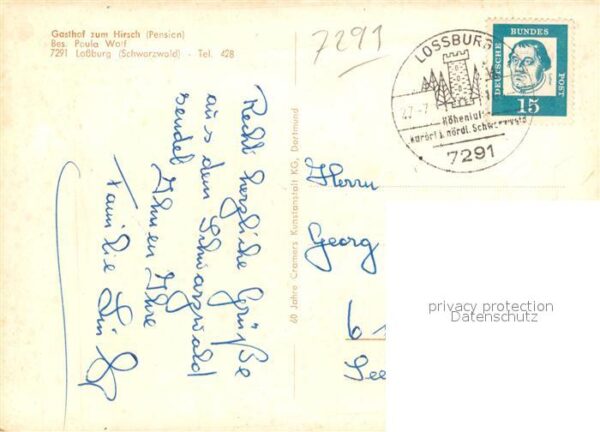 Gasthof zum Hirsch (Pension)
Bes. Paula Wolf
7291 Loßburg (Schwarzwald) - Tel. 428
7291
LOSSBURG
27.-7
Höhenluft
Kurort i. nördl. Schwarzwald
7291
DEUTSCHE
BUNDES
POST
15
Recht herzliche Grüße
aus dem Schwarzwald
sendet Ihnen Ihre
Familie
60 Jahre Cramers Kunstanstalt KG, Dortmund
Herrn
Georg
6
See
privacy protection
Datenschutz